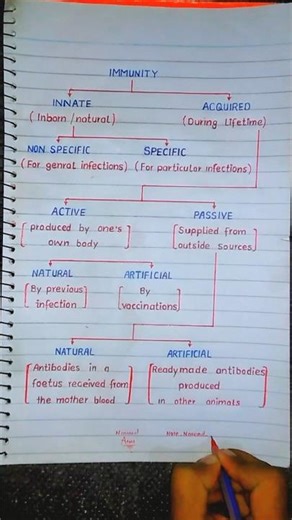 IMMUNITY
INNATE
(Inborn/natural)
ACQUIRED
(During lifetime)
NON SPECIFIC
(For genral infections)
SPECIFIC
(For particular infections)
ACTIVE
[produced by one's
own body]
PASSIVE
[Supplied from
outside sources]
NATURAL
[By previous
infection]
ARTIFICIAL
[By
vaccinations]
NATURAL
[Antibodies in a
foetus received from
the mother blood]
ARTIFICIAL
[Readymade antibodies
produced
in other animals]